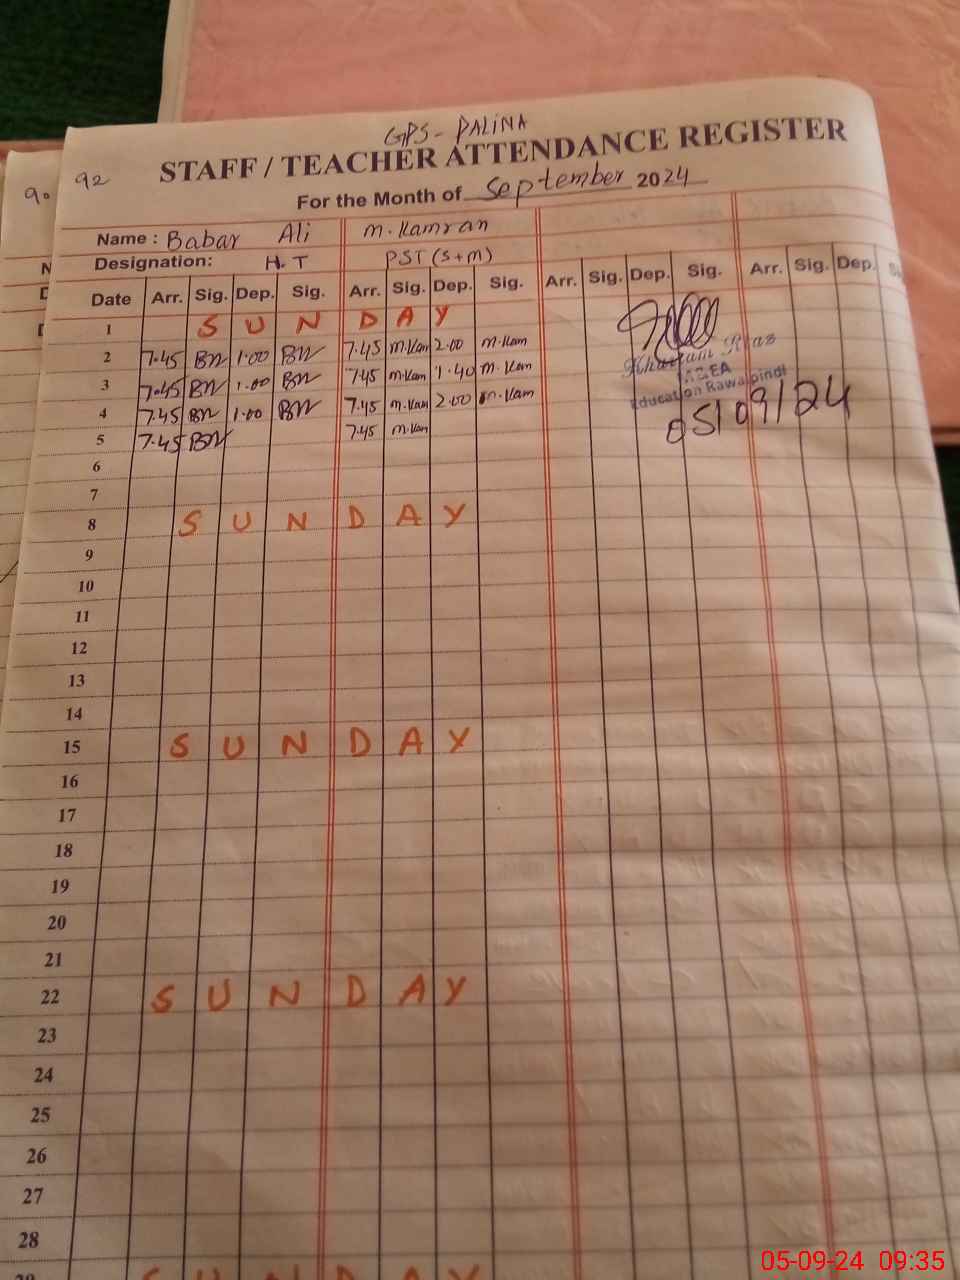 GPS- PALINA
90 92 STAFF / TEACHER ATTENDANCE REGISTER
For the Month of September 2024
Name : Babar Ali m.Kamran
Designation: H.T PST (S+M)
Date Arr. Sig. Dep. Sig. Arr. Sig. Dep. Sig. Arr. Sig. Dep. Sig. Arr. Sig. Dep.
1 S U N D A Y
2 7.45 BN 1.00 BN 7.45 m.Kam 2.00 m.Kam
3 7.45 BN 1.00 BN 7.45 m.Kam 1.40 m.Kam
4 7.45 BN 1.00 BN 7.45 m.Kam 2.00 m.Kam
5 7.45 BN 7.45 m.Kam
Education Rawalpindi
05/09/24
6
7
8 S U N D A Y
9
10
11
12
13
14
15 S U N D A Y
16
17
18
19
20
21
22 S U N D A Y
23
24
25
26
27
28
05-09-24 09:35